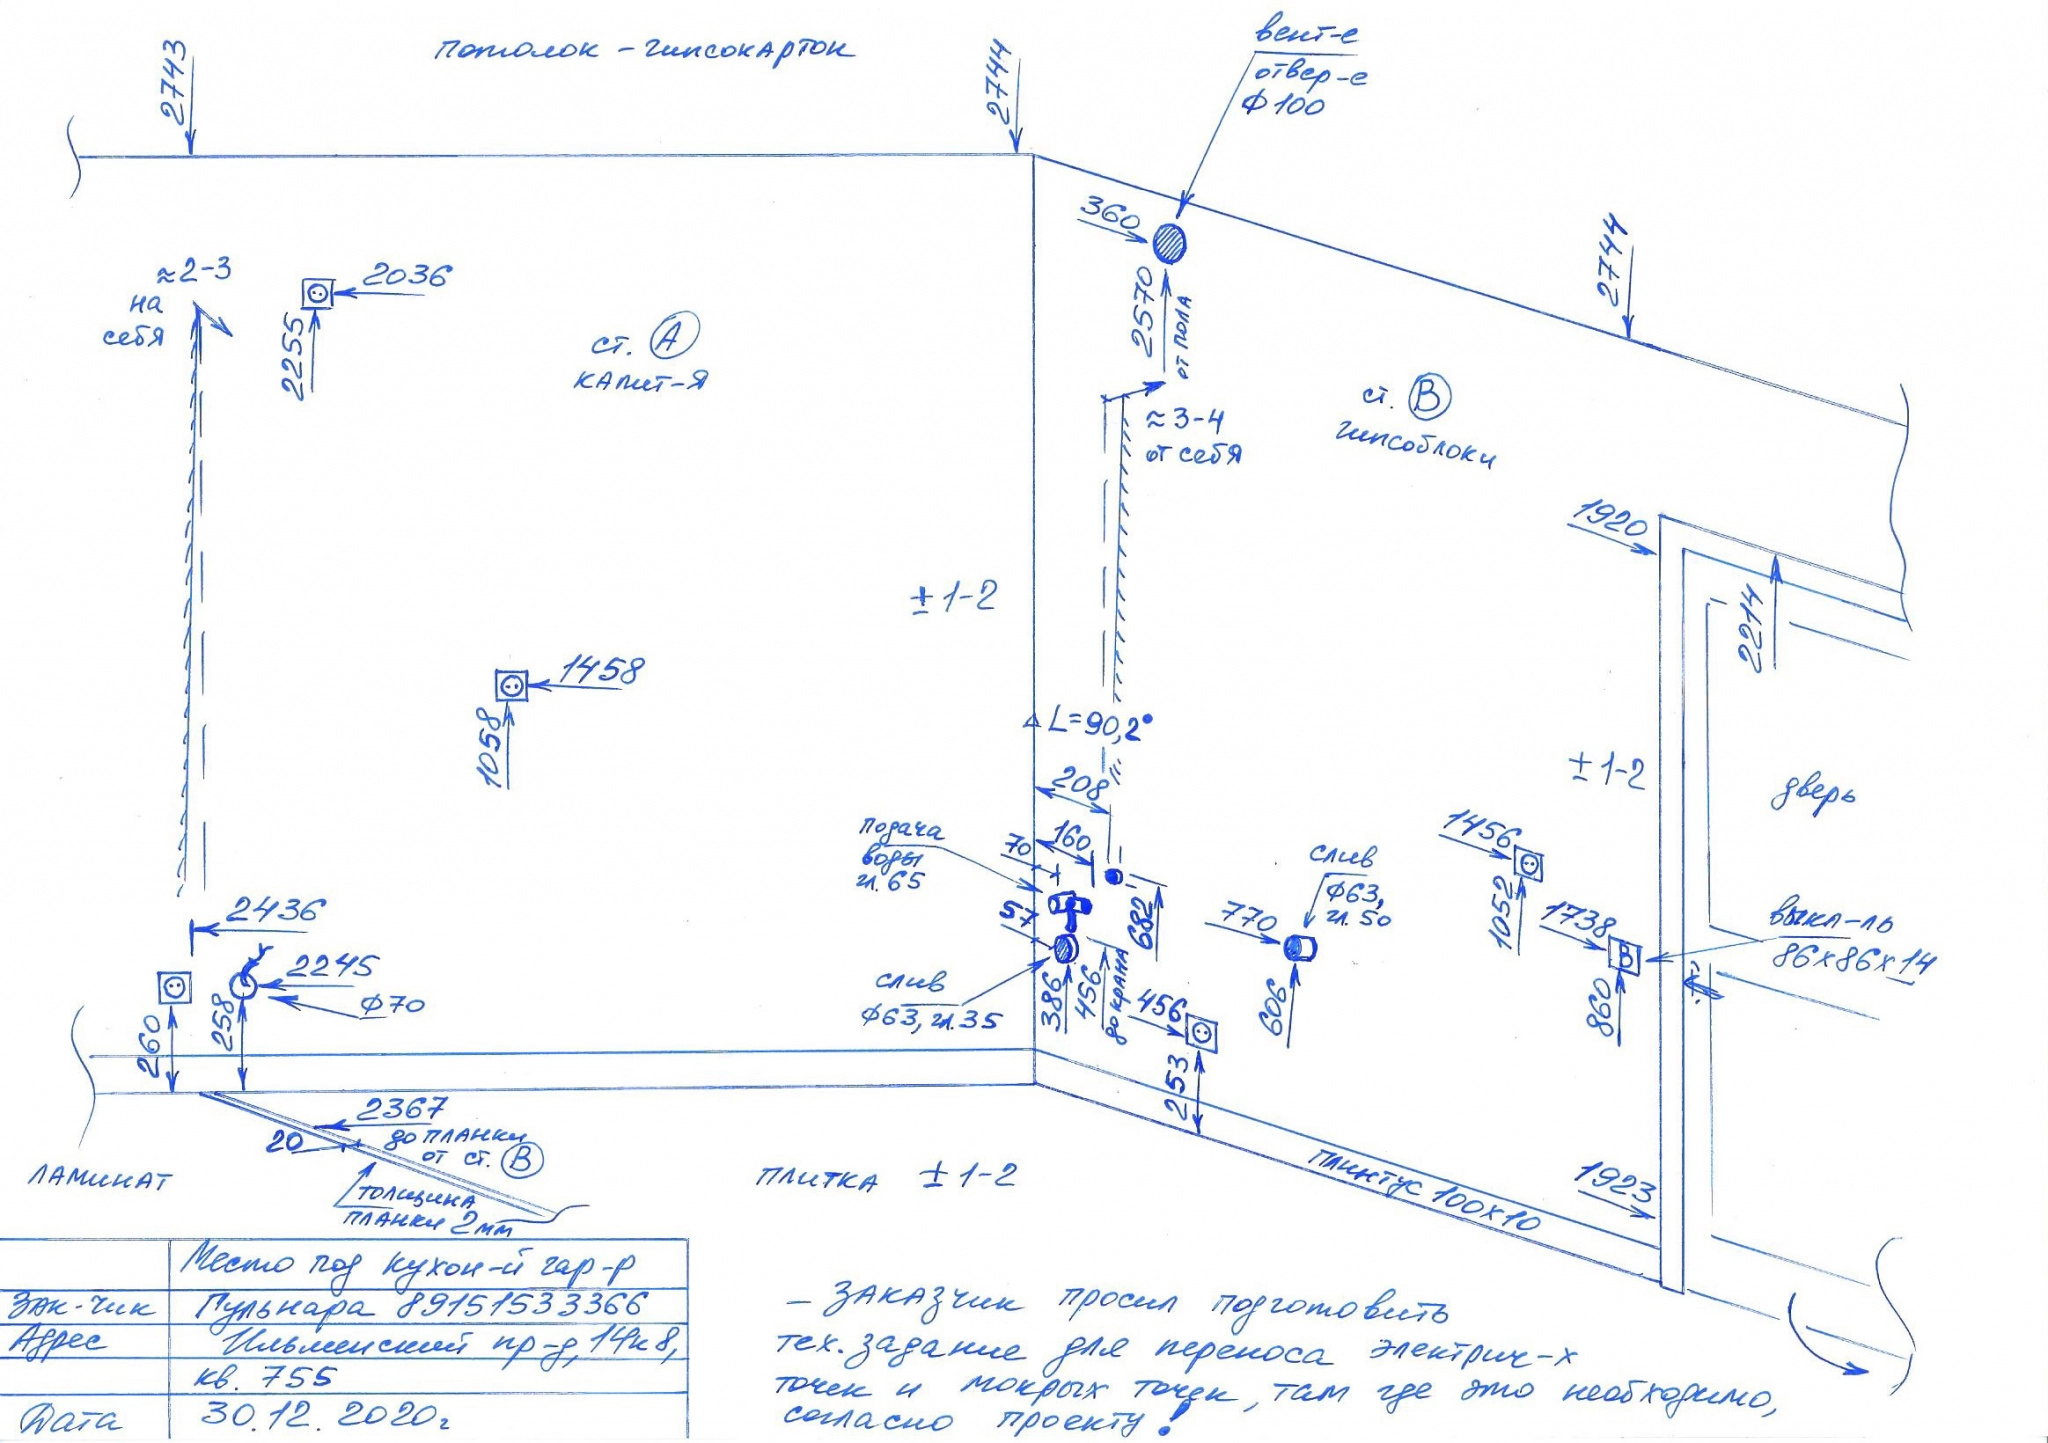 потолок - гипсокартон
2743
2744
вент-е
отвер-е
ф100
360
2570
от пола
2744
≈2-3
на
себя
2036
2255
ст. А
капит-я
≈3-4
от себя
ст. В
гипсоблоки
1920
2214
± 1-2
1458
1058
L=90,2°
208
± 1-2
дверь
подача
воды
гл.65
70
160
57
682
слив
ф63, гл.35
386
456
до крана
456
253
770
606
слив
ф63,
гл.50
1456
1052
1738
В
860
выкл-ль
86х86х14
2436
2245
ф70
260
258
2367
до планки
от ст. В
20
толщина
планки 2мм
ламинат
плитка ± 1-2
плинтус 100х10
1923
Место под кухон-й гар-р
Зак-чик Гульнара 89151533366
Адрес Ильменский пр-д, 14к8,
кв. 755
Дата 30.12.2020г
- Заказчик просил подготовить
тех. задание для переноса электрич-х
точек и мокрых точек, там где это необходимо,
согласно проекту!